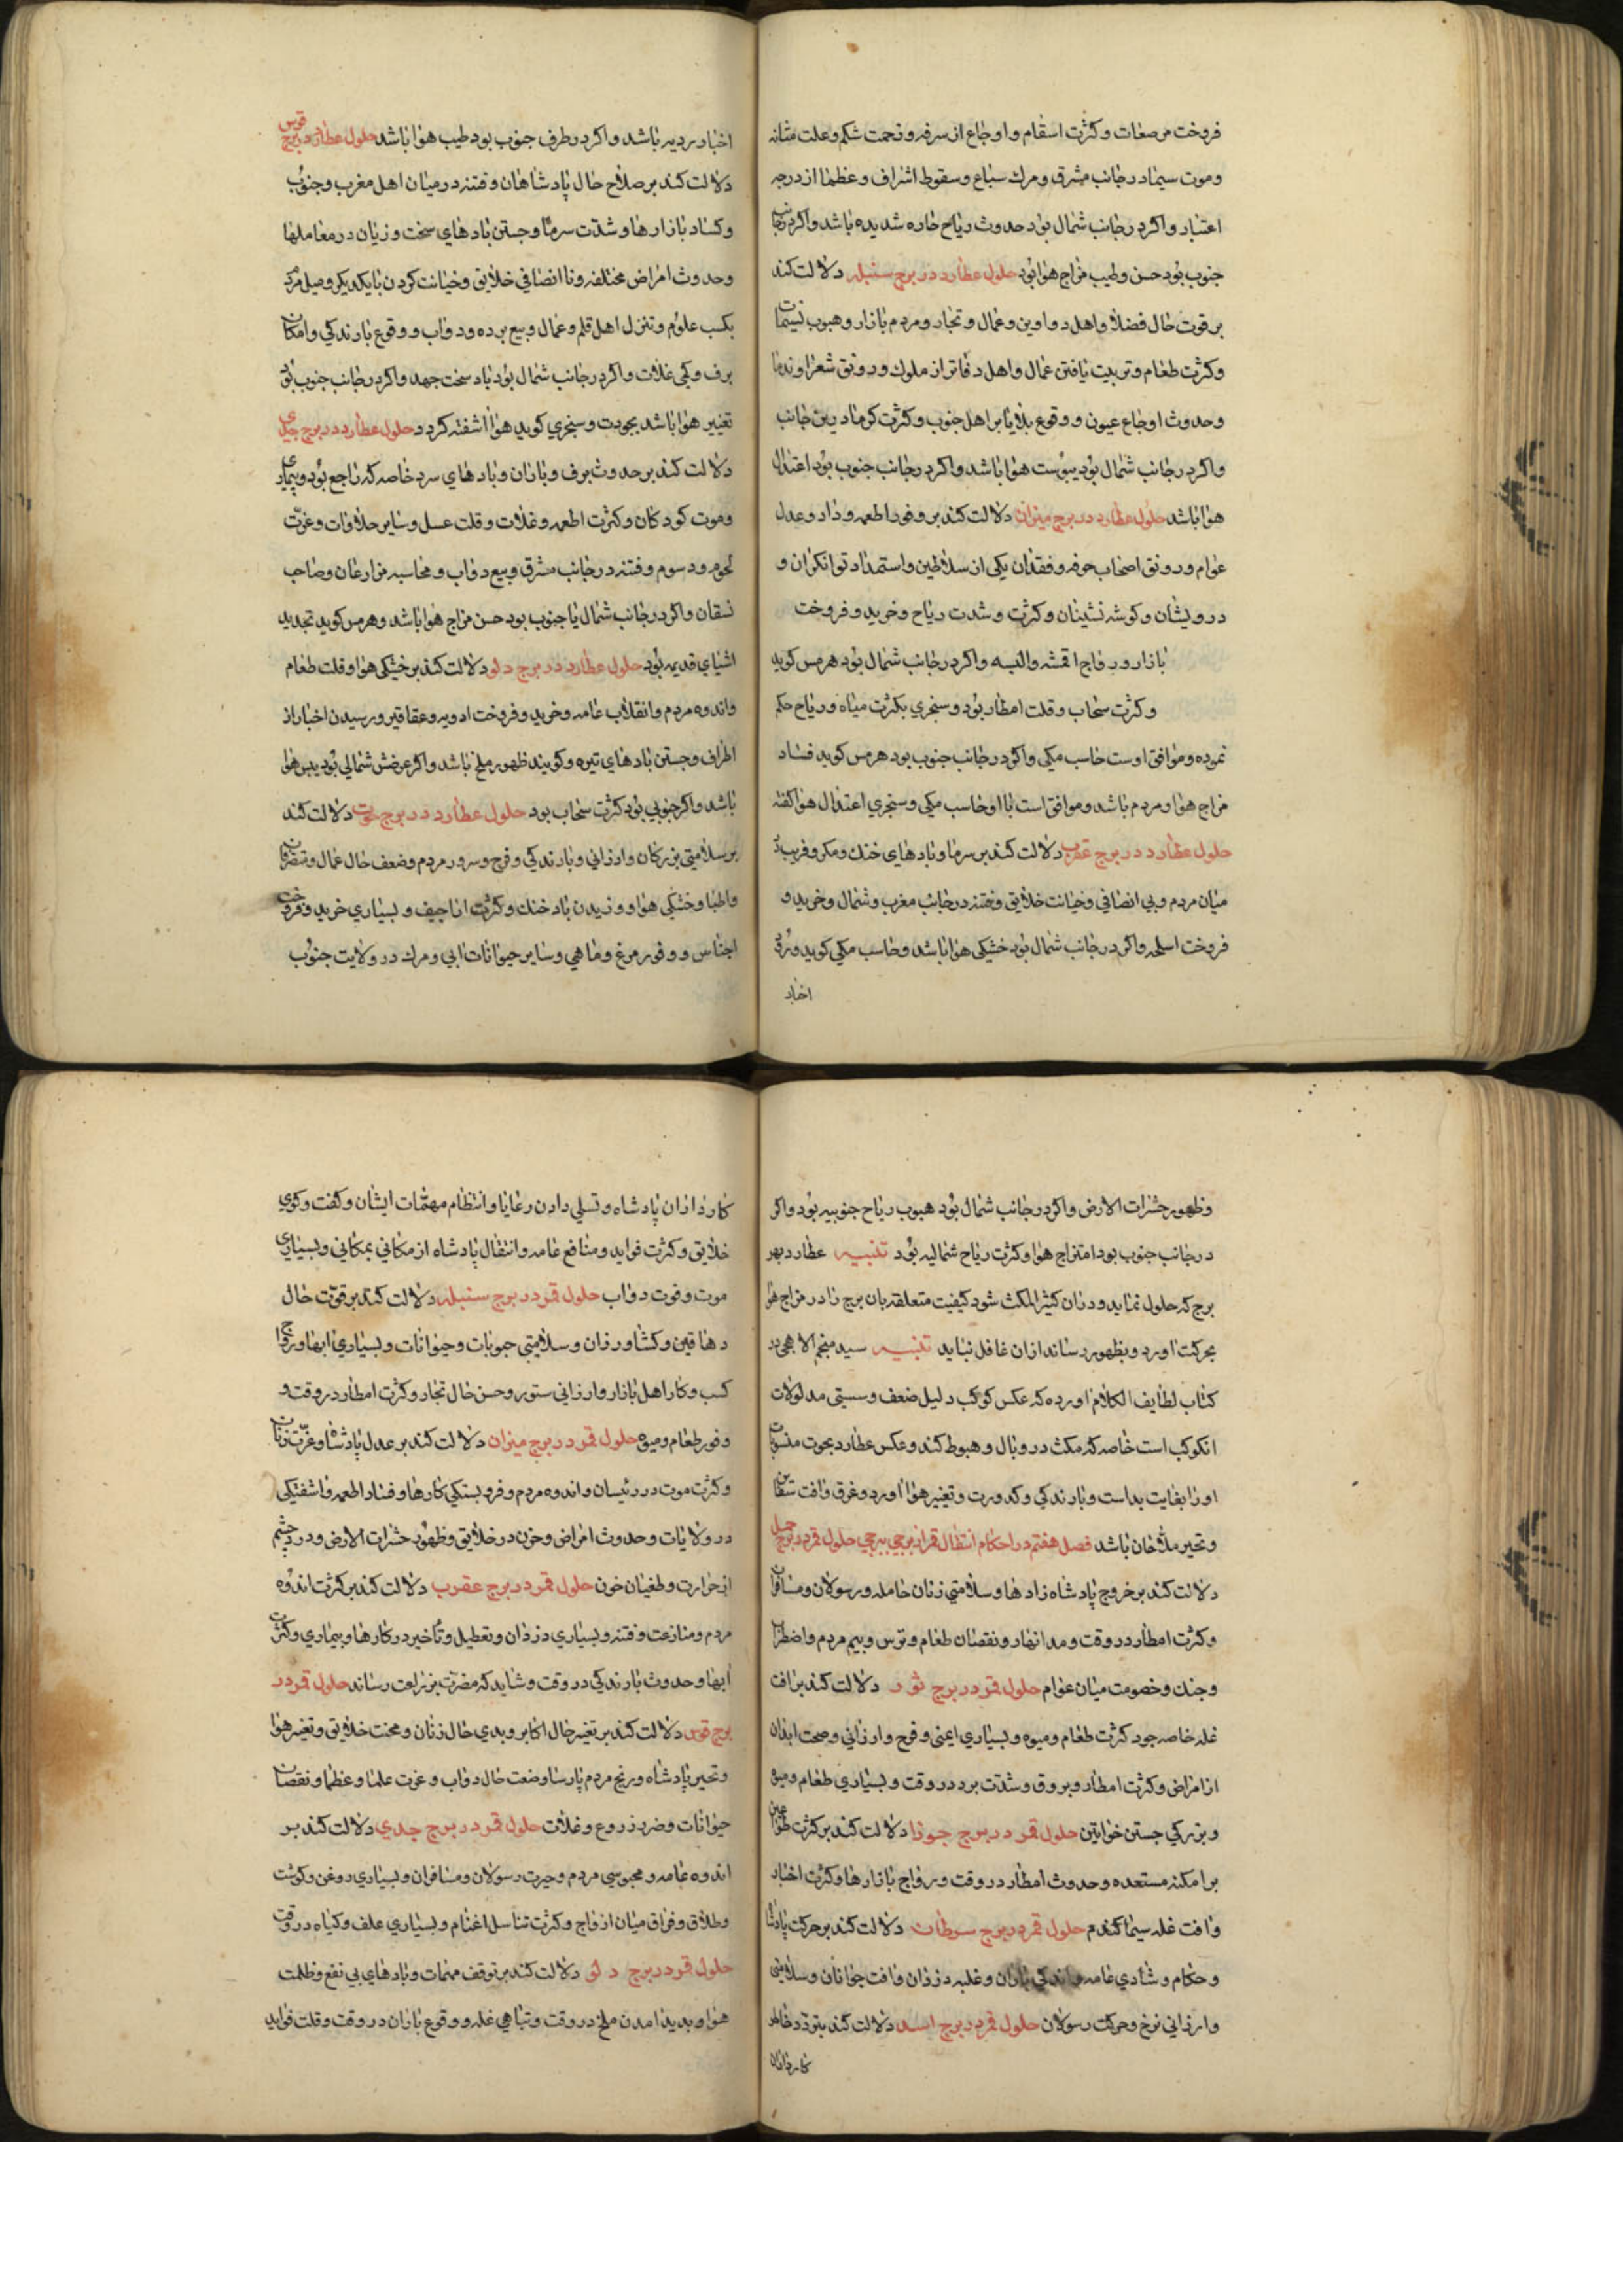 فروخت مرصعات و کثرت اسقام و اوجاع از سرفه و زحمت شکم و علت مثانه
و موت سیما در جانب مشرق و مرک سباع و سقوط اشراف و عظما از درجه
اعتبار و اکر در جانب شمال بود حدوث ریاح حاره شدیده باشد و اکر در جانب
جنوب بود حسن و طیب مزاج هوا بود حلول عطارد در برج سنبله دلالت کند
بر قوت حال فضلا و اهل دواوین و عمال و تجار و مردم بازار و هبوب نسیمات
و کثرت طعام و تربیت یافتن عمال و اهل دفاتر از ملوک و رونق شعرا و ندما
و حدوث اوجاع عیون و وقوع بلایا بر اهل جنوب و کثرت کرما درین جانب
و اکر در جانب شمال بود یبوست هوا باشد و اکر در جانب جنوب بود اعتدال
هوا باشد حلول عطارد در برج میزان دلالت کند بر وفور اطعمه و داد و عدل
عوام و رونق اصحاب حرفه و فقدان یکی از سلاطین و استمداد توانکران و
درویشان و کوشه نشینان و کثرت و شدت ریاح و خرید و فروخت
بازار و رواج اقمشه و البسه و اکر در جانب شمال بود هرمس کوید
و کثرت سحاب و قلت امطار بود و سنجری بکثرت میاه و ریاح حکم
نموده و موافق اوست حاسب مکی و اکر در جانب جنوب بود هرمس کوید فساد
مزاج هوا و مردم باشد و موافق است با او حاسب مکی و سنجری اعتدال هوا کفته
حلول عطارد در برج عقرب دلالت کند بر سرما و بادهای خنک و مکر و فریب
میان مردم و بی انصافی و خیانت خلایق و فتنه در جانب مغرب و شمال و خرید و
فروخت اسلحه و اکر در جانب شمال بود خشکی هوا باشد و حاسب مکی کوید ورود
اخبار
اخبار ردیه باشد و اکر در طرف جنوب بود طیب هوا باشد حلول عطارد در برج قوس
دلالت کند بر صلاح حال پادشاهان و فتنه در میان اهل مغرب و جنوب
و کساد بازارها و شدت سرما و جستن بادهای سخت و زیان در معاملها
و حدوث امراض مختلفه و ناانصافی خلایق و خیانت کردن با یکدیکر و میل مردم
بکسب علوم و تنزل اهل قلم و عمال و بیع برده و دواب و وقوع بارندکی و امکان
برف و کمی غلات و اکر در جانب شمال بود باد سخت جهد و اکر در جانب جنوب بود
تغییر هوا باشد بجودت و سنجری کوید هوا آشفته کردد حلول عطارد در برج جدی
دلالت کند بر حدوث برف و باران و بادهای سرد خاصه که راجع بود و بیماری
و موت کودکان و کثرت اطعمه و غلات و قلت عسل و سایر حلاوات و عزت
لحوم و دسوم و فتنه در جانب مشرق و بیع دواب و محاسبه مزارعان و صاحب
نسقان و اکر در جانب شمال یا جنوب بود حسن مزاج هوا باشد و هرمس کوید تجدید
اشیای قدیمه بود حلول عطارد در برج دلو دلالت کند بر خشکی هوا و قلت طعام
و اندوه مردم و انقلاب عامه و خرید و فروخت ادویه و عقاقیر و رسیدن اخبار از
اطراف و جستن بادهای تیره و کویند ظهور ملخ باشد و اکر عرضش شمالی بود یبس هوا
باشد و اکر جنوبی بود کثرت سحاب بود حلول عطارد در برج حوت دلالت کند
بر سلامتی بزرکان و ارزانی و بارندکی و فرح و سرور مردم و ضعف حال عمال و متصرفان
و اطبا و خشکی هوا و وزیدن باد خنک و کثرت اراجیف و بسیاری خرید و فروخت
اجناس و وفور مرغ و ماهی و سایر حیوانات آبی و مرک در ولایت جنوب
و ظهور حشرات الارض و اکر در جانب شمال بود هبوب ریاح جنوبیه بود و اکر
در جانب جنوب بود امتزاج هوا و کثرت ریاح شمالیه بود تنبیه عطارد بهر
برج که حلول نماید و در آن کثیر المکث شود کیفیت متعلقه بان برج را در مزاج هوا
بحرکت آورد و بظهور رساند از آن غافل نباید تنبیه سید منجم الاهجی در
کتاب لطایف الکلام آورده که عکس کوکب دلیل ضعف و سستی مدلولات
آن کوکب است خاصه که مکث در وبال و هبوط کند و عکس عطارد بحوت منسوبات
او را بغایت بد است و بارندکی و کدورت و تغییر هوا آورد و غرق و آفت سفاین
و تحیر ملاحان باشد فصل هفتم در احکام انتقال قمر از برجی ببرجی حلول قمر در برج حمل
دلالت کند بر خروج پادشاه زادها و سلامتی زنان حامله و رسولان و مسافران
و کثرت امطار در وقت و مد انهار و نقصان طعام و ترس و بیم مردم و اضطراب
و جنک و خصومت میان عوام حلول قمر در برج ثور دلالت کند بر آفت
غله خاصه جو و کثرت طعام و میوه و بسیاری ایمنی و فرح و ارزانی و صحت ابدان
از امراض و کثرت امطار و بروق و شدت برد در وقت و بسیاری طعام و میوه
و بزرکی جستن خواتین حلول قمر در برج جوزا دلالت کند بر کثرت طواعین
بر امکنه مستعده و حدوث امطار در وقت و رواج بازارها و کثرت اخبار
و آفت غله سیما کندم حلول قمر در برج سرطان دلالت کند بر حرکت پادشاه
و حکام و شادی عامه و اندکی باران و غلبه دزدان و آفت جوانان و سلامتی
و ارزانی نرخ و حرکت رسولان حلول قمر در برج اسد دلالت کند بتردد خاطر
کارداران
کارداران پادشاه و تسلی دادن رعایا و انتظام مهمات ایشان و کفت و کوی
خلایق و کثرت فواید و منافع عامه و انتقال پادشاه از مکانی بمکانی و بسیاری
موت و فوت دواب حلول قمر در برج سنبله دلالت کند بر قوت حال
دهاقین و کشاورزان و سلامتی حبوبات و حیوانات و بسیاری آبها و رواج
کسب و کار اهل بازار و ارزانی ستور و حسن حال تجار و کثرت امطار در وقت و
وفور طعام و میوه حلول قمر در برج میزان دلالت کند بر عدل پادشاه و عزت زنان
و کثرت موت در رئیسان و اندوه مردم و فروبستکی کارها و فساد اطعمه و آشفتکی
در ولایات و حدوث امراض و حزن در خلایق و ظهور حشرات الارض و درد چشم
از حرارت و طغیان خون حلول قمر در برج عقرب دلالت کند بر کثرت اندوه
مردم و منازعت و فتنه و بسیاری دزدان و تعطیل و تاخیر در کارها و بیماری و کثرت
آبها و حدوث بارندکی در وقت و شاید که مضرت بزراعت رساند حلول قمر در
برج قوس دلالت کند بر تغیر حال اکابر و بدی حال زنان و محنت خلایق و تغیر هوا
و تحیر پادشاه و رنج مردم پارسا و ضعف حال دواب و عزت علما و عظما و نقصان
حیوانات و ضرر زروع و غلات حلول قمر در برج جدی دلالت کند بر
اندوه عامه و محبوسی مردم و حیرت رسولان و مسافران و بسیاری روغن و کوشت
و طلاق و فراق میان ازواج و کثرت تناسل اغنام و بسیاری علف و کیاه در وقت
حلول قمر در برج دلو دلالت کند بر توقف مهمات و بادهای بی نفع و ظلمت
هوا و پدید آمدن ملخ در وقت و تباهی غله و وقوع باران در وقت و قلت فواید